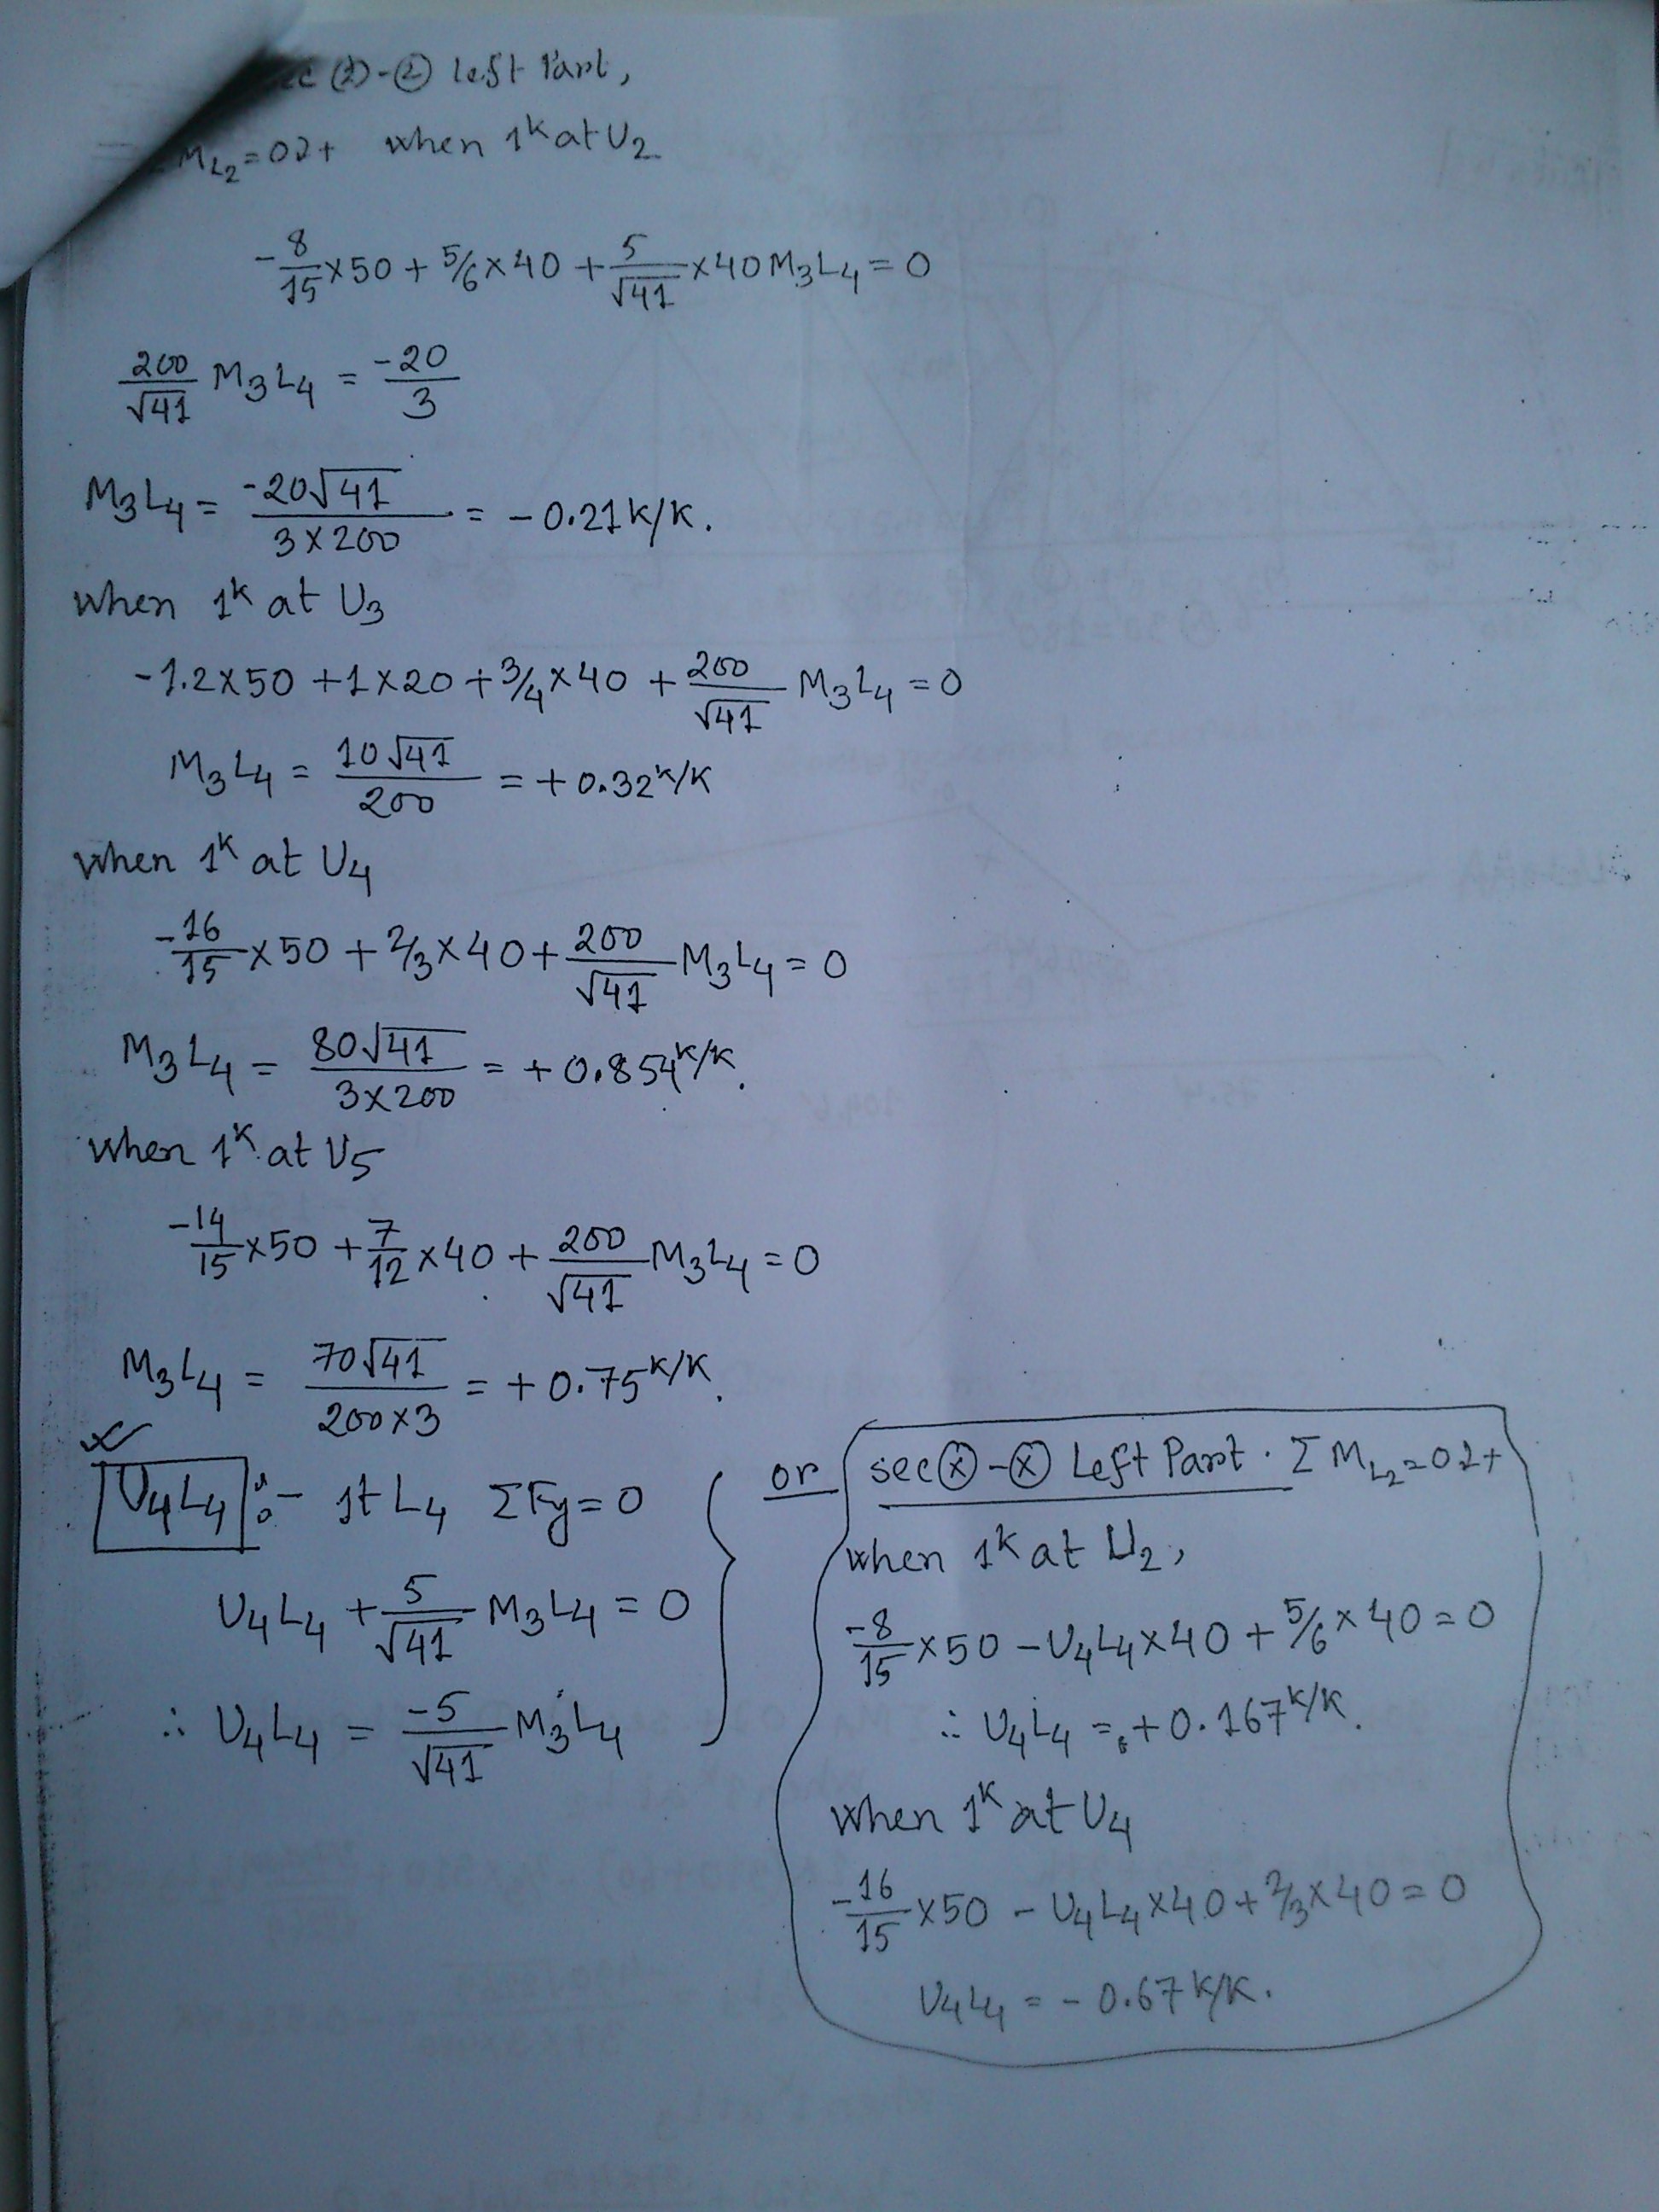 (2)-(2) Left Part,
M_L2 = 0 ↻+ when 1^K at U2
-8/15 × 50 + 5/6 × 40 + 5/√41 × 40 M3L4 = 0
200/√41 M3L4 = -20/3
M3L4 = -20√41 / 3×200 = -0.21 K/K.
when 1^K at U3
-1.2×50 + 1×20 + 3/4×40 + 200/√41 M3L4 = 0
M3L4 = 10√41 / 200 = +0.32 K/K
when 1^K at U4
-16/15 × 50 + 2/3 × 40 + 200/√41 M3L4 = 0
M3L4 = 80√41 / 3×200 = +0.854 K/K.
when 1^K at U5
-14/15 × 50 + 7/12 × 40 + 200/√41 M3L4 = 0
M3L4 = 70√41 / 200×3 = +0.75 K/K.
U4L4 :- 1t L4 ΣFy = 0
U4L4 + 5/√41 M3L4 = 0
∴ U4L4 = -5/√41 M3L4
or
sec (x)-(x) Left Part. ΣM_L2 = 0 ↻+
when 1^K at U2,
-8/15 × 50 - U4L4 × 40 + 5/6 × 40 = 0
∴ U4L4 = +0.167 K/K.
when 1^K at U4
-16/15 × 50 - U4L4 × 40 + 2/3 × 40 = 0
U4L4 = -0.67 K/K.